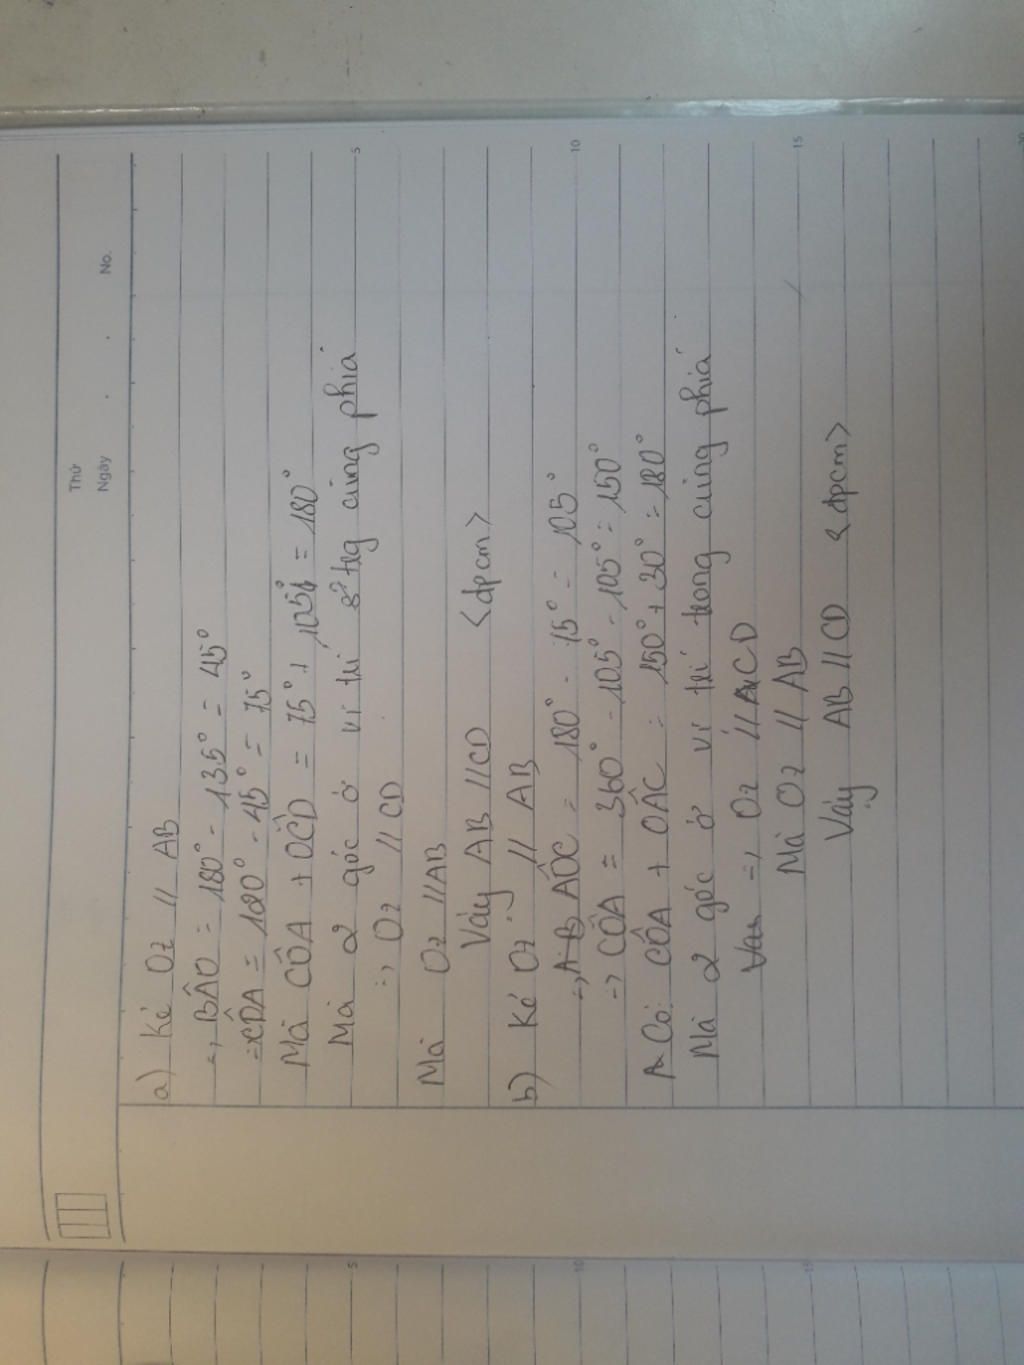 Thứ
Ngày . . No.
a) Kẻ Oz // AB
=> BÂO = 180° - 135° = 45°
=> CÔA = 120° - 45° = 75°
Mà CÔA + OĈD = 75° + 105° = 180°
Mà 2 góc ở vị trí tg cùng phía
=> Oz // CD
Mà Oz // AB
Vây AB // CD <đpcm>
b) Kẻ Oz // AB
=> AÔC = 180° - 75° = 105°
=> CÔA = 360° - 105° - 105° = 150°
Có: CÔA + OÂC = 150° + 30° = 180°
Mà 2 góc ở vị trí trong cùng phía
=> Oz // CD
Mà Oz // AB
Vậy AB // CD <đpcm>
5
10
15
20
5
10
15